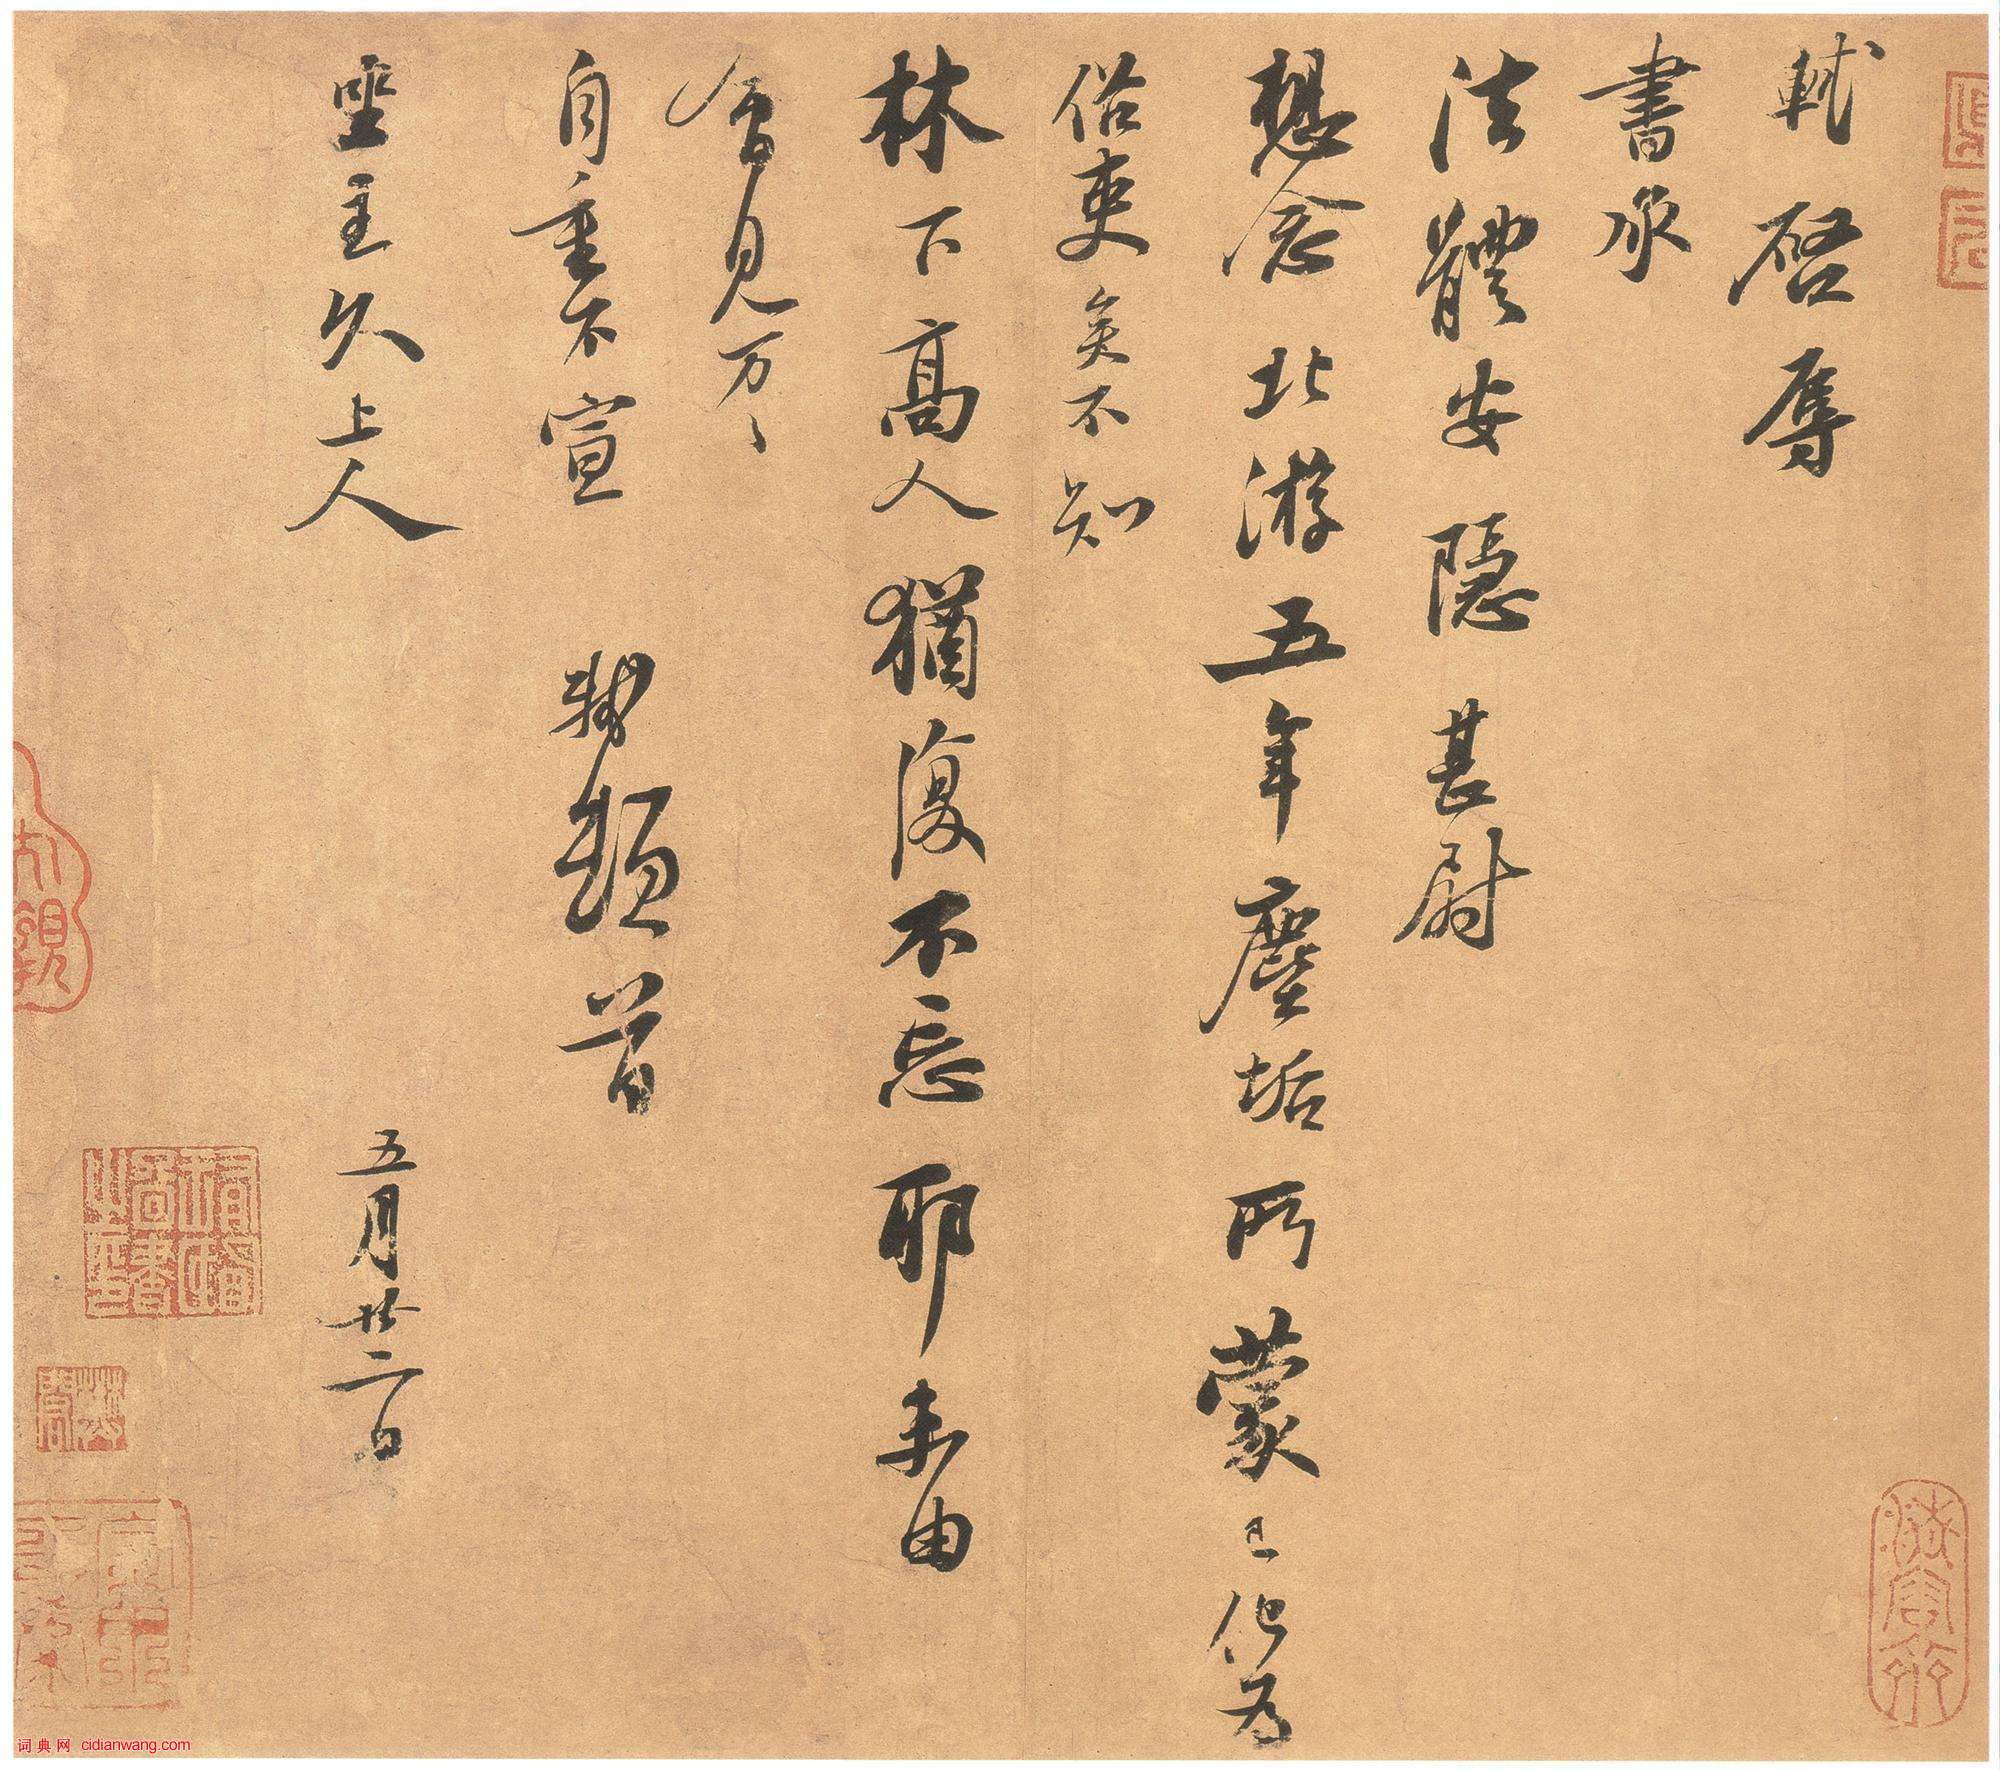 軾啓辱
書承
法體安隱甚尉
想念北游五年塵垢所蒙已化為
俗吏矣不知
林下高人猶復不忘耶未由
會見万〻
自重不宣 軾頓首
坐主久上人 五月廿二日
词典网 cidianwang.com